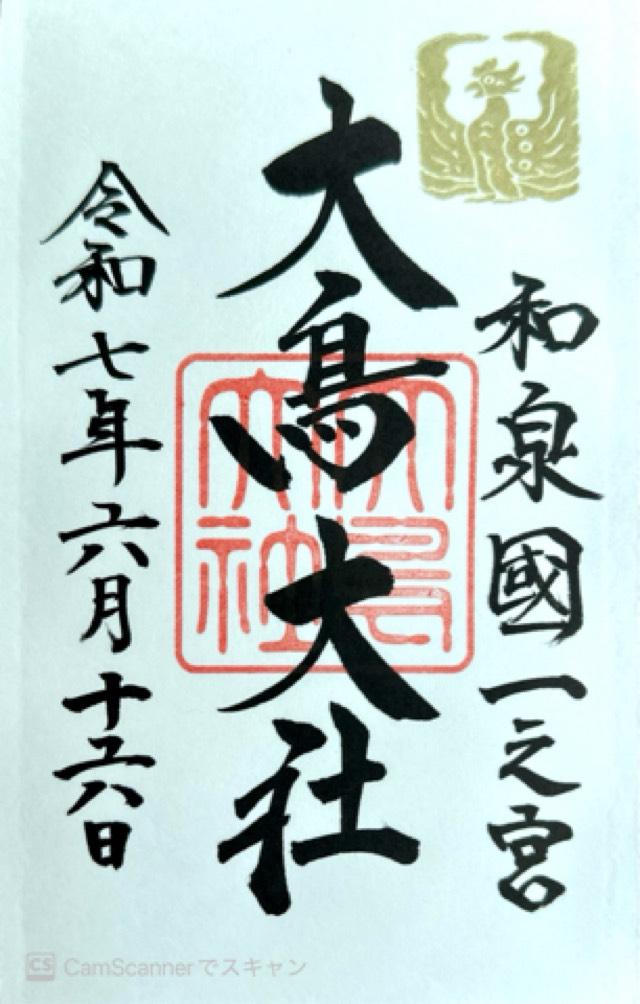 和泉國一之宮
大鳥大社
令和七年六月十六日
大鳥大社
CS CamScannerでスキャン